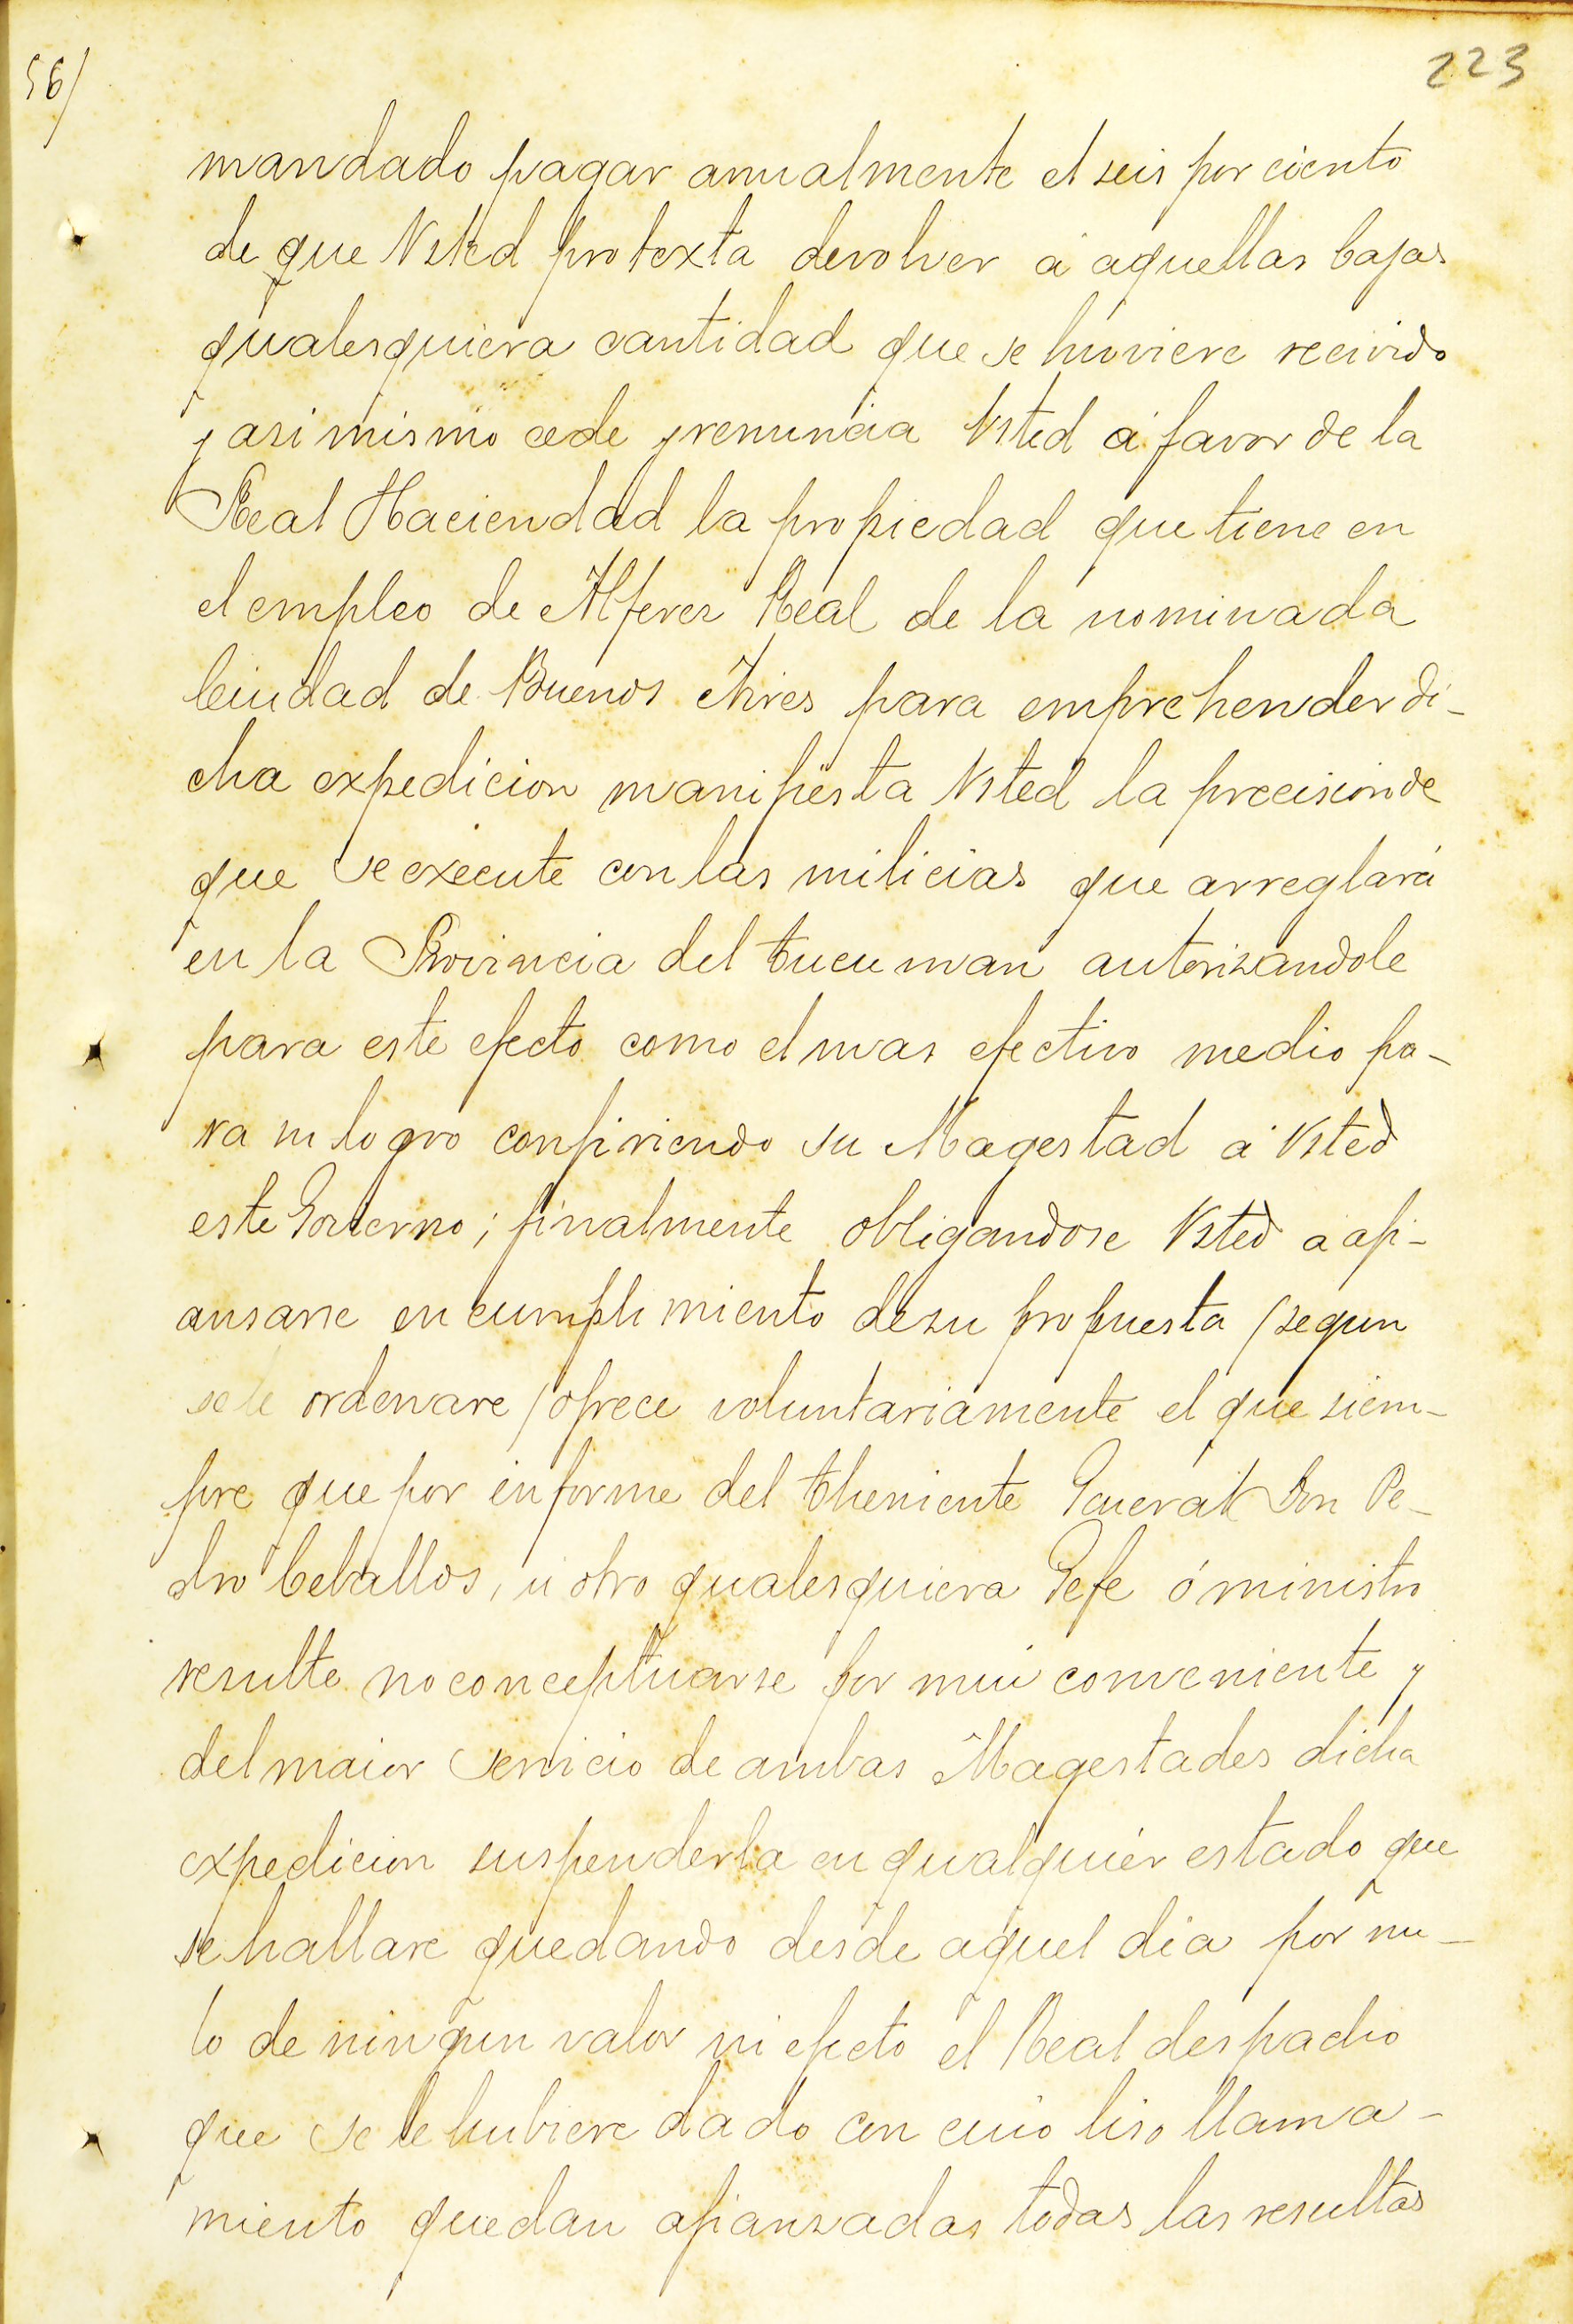 56/
223
mandado pagar anualmente el seis por ciento
de que Vsted protexta devolver a aquellas bajas
qualesquiera cantidad que se huviere recivido
y asi mismo cede y renuncia Vsted a favor de la
Real Haciendad la propiedad que tiene en
el empleo de Alferez Real de la nominada
Ciudad de Buenos Aires para emprehender di-
cha expedicion manifiesta Vsted la precision de
que se execute con las milicias que arreglará
en la Provincia del tucuman autorizandole
para este efecto como el mas efectivo medio pa-
ra su logro confiriendo su Magestad a Vsted
este Govierno; finalmente obligandose Vsted a afi-
ansarse en cumplimiento de su propuesta (segun
se le ordenare) ofrece voluntariamente el que siem-
pre que por informe del theniente General Don Pe-
dro Ceballos, u otro qualesquiera Gefe ó ministro
resulte no conceptuarse por mui conveniente y
del maior servicio de ambas Magestades dicha
expedicion suspenderla en qualquier estado que
se hallare quedando desde aquel dia por nu-
lo de ningun valor ni efecto el Real despacho
que se le hubiere dado con cuio liso llama-
miento quedan afianzadas todas las resultas